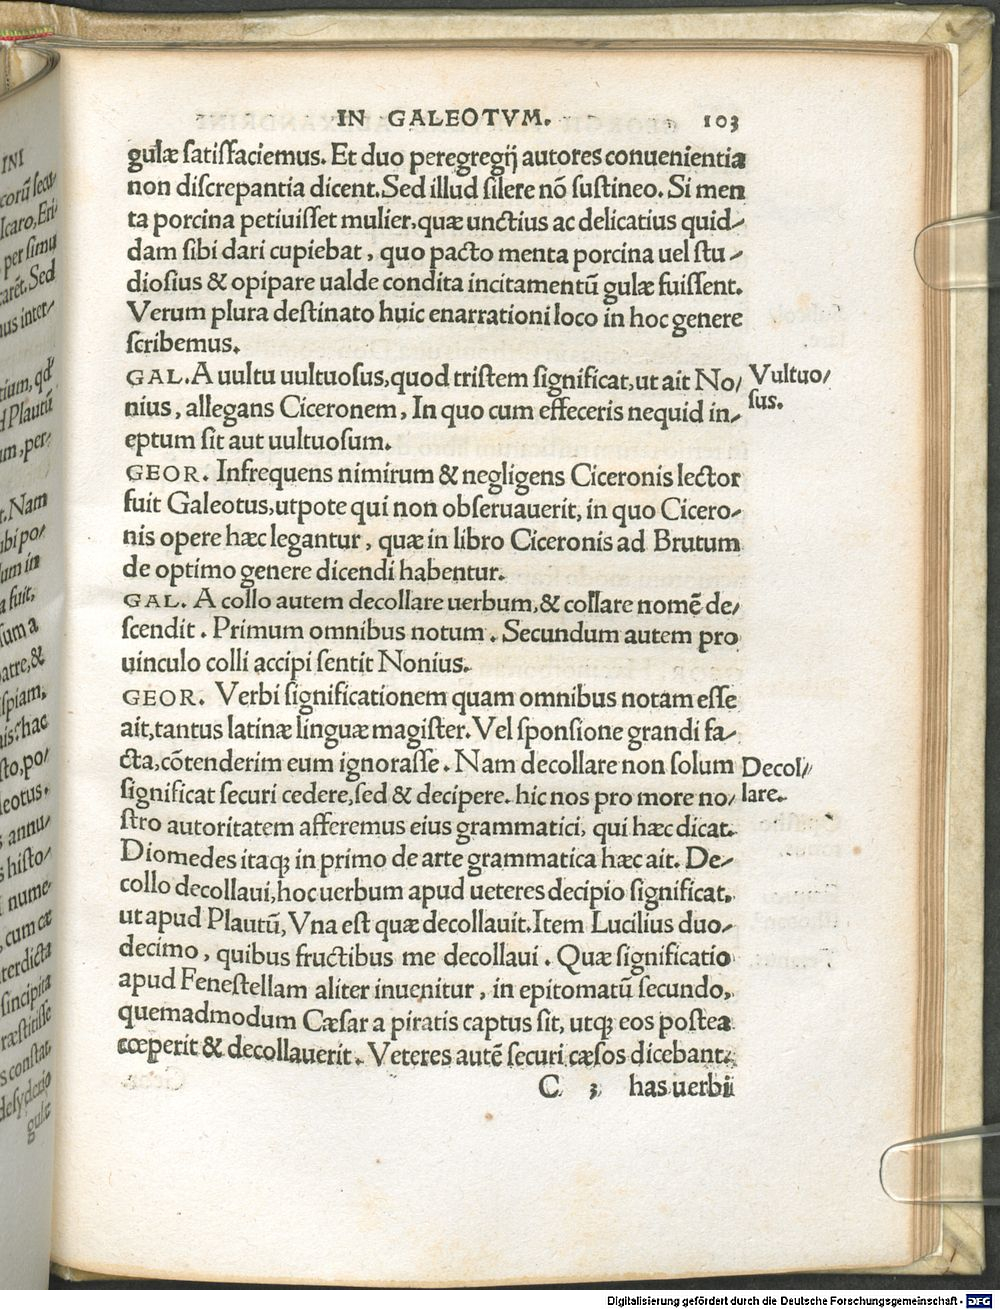 IN GALEOTVM. 103
gulæ satisfaciemus. Et duo peregregij autores conuenientia
non discrepantia dicent. Sed illud silere nõ sustineo. Si men
ta porcina petiuisset mulier, quæ unctius ac delicatius quid-
dam sibi dari cupiebat, quo pacto menta porcina uel stu-
diosius & opipare ualde condita incitamentũ gulæ fuissent.
Verum plura destinato huic enarrationi loco in hoc genere
scribemus.
GAL. A uultu uultuosus, quod tristem significat, ut ait No/
Vultuo/
nius, allegans Ciceronem, In quo cum effeceris nequid in-
sus.
eptum sit aut uultuosum.
GEOR. Infrequens nimirum & negligens Ciceronis lector
fuit Galeotus, utpote qui non obseruauerit, in quo Cicero-
nis opere hæc legantur, quæ in libro Ciceronis ad Brutum
de optimo genere dicendi habentur.
GAL. A collo autem decollare uerbum, & collare nomẽ de/
scendit. Primum omnibus notum. Secundum autem pro
uinculo colli accipi sentit Nonius.
GEOR. Verbi significationem quam omnibus notam esse
ait, tantus latinæ linguæ magister. Vel sponsione grandi fa-
cta, cõtenderim eum ignorasse. Nam decollare non solum
Decol/
significat securi cedere, sed & decipere. hic nos pro more no/
lare.
stro autoritatem afferemus eius grammatici, qui hæc dicat.
Diomedes itaqꝫ in primo de arte grammatica hæc ait. De-
collo decollaui, hoc uerbum apud ueteres decipio significat.
ut apud Plautũ, Vna est quæ decollauit. Item Lucilius duo-
decimo, quibus fructibus me decollaui. Quæ significatio
apud Fenestellam aliter inuenitur, in epitomatũ secundo,
quemadmodum Cæsar a piratis captus sit, utqꝫ eos postea
cœperit & decollauerit. Veteres autẽ securi cæsos dicebant.
C 3 has uerbi
INI
Icaro, Eri/
per simu
Sed
inter-
tium, qđ
Plautũ
per-
Nam
fuit,
sum a
atre, &
spiam,
hac
sto, po/
leotus.
annu-
histo-
nume-
cum cæ
terdicta
sincipita
ræstitisse
constat
desyderio
gulæ
Digitalisierung gefördert durch die Deutsche Forschungsgemeinschaft - DFG